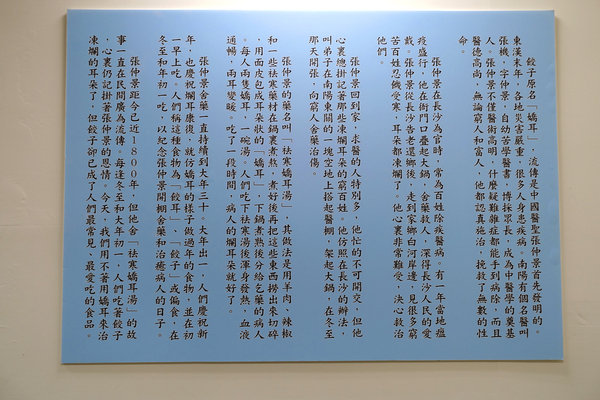 餃子原名「嬌耳」，流傳是中國醫聖張仲景首先發明的。
東漢末年，各地災害嚴重，很多人身患疾病。南陽有個名醫叫
張機，字仲景，自幼苦學醫書，博採眾長，成為中醫學的奠基
人。張仲景不僅醫術高明，什麼疑難雜症都能手到病除，而且
醫德高尚，無論窮人和富人，他都認真施治，挽救了無數的性
命。
張仲景在長沙為官時，常為百姓除疾醫病。有一年當地瘟
疫盛行，他在衙門口壘起大鍋，舍藥救人，深得長沙人民的愛
戴。張仲景從長沙告老還鄉後，走到家鄉白河岸邊，見很多窮
苦百姓忍饑受寒，耳朵都凍爛了。他心裏非常難受，決心救治
他們。
張仲景回到家，求醫的人特別多，他忙的不可開交，但他
心裏總掛記著那些凍爛耳朵的窮百姓。他仿照在長沙的辦法，
叫弟子在南陽東關的一塊空地上搭起醫棚，架起大鍋，在冬至
那天開張，向窮人舍藥治傷。
張仲景的藥名叫「祛寒嬌耳湯」，其做法是用羊肉、辣椒
和一些祛寒藥材在鍋裏煮熬，煮好後再把這些東西撈出來切碎
，用面皮包成耳朵狀的「嬌耳」，下鍋煮熟後分給乞藥的病人
。每人兩隻嬌耳，一碗湯。人們吃下祛寒湯後渾身發熱，血液
通暢，兩耳變暖。吃了一段時間，病人的爛耳朵就好了。
張仲景舍藥一直持續到大年三十。大年出一，人們慶祝新
年，也慶祝爛耳康復，就仿嬌耳的樣子做過年的食物，並在初
一早上吃。人們稱這種食物為「餃耳」、「餃子」或偏食，在
冬至和年初一吃，以紀念張仲景開棚舍藥和治癒病人的日子。
張仲景距今已近1800年，但他舍「祛寒嬌耳湯」的故
事一直在民間廣為流傳。每逢冬至和大年初一，人們吃著餃子
，心裏仍記掛著張仲景的恩情。今天，我們用不著用嬌耳來治
凍爛的耳朵了，但餃子卻已成了人們最常見、最愛吃的食品。